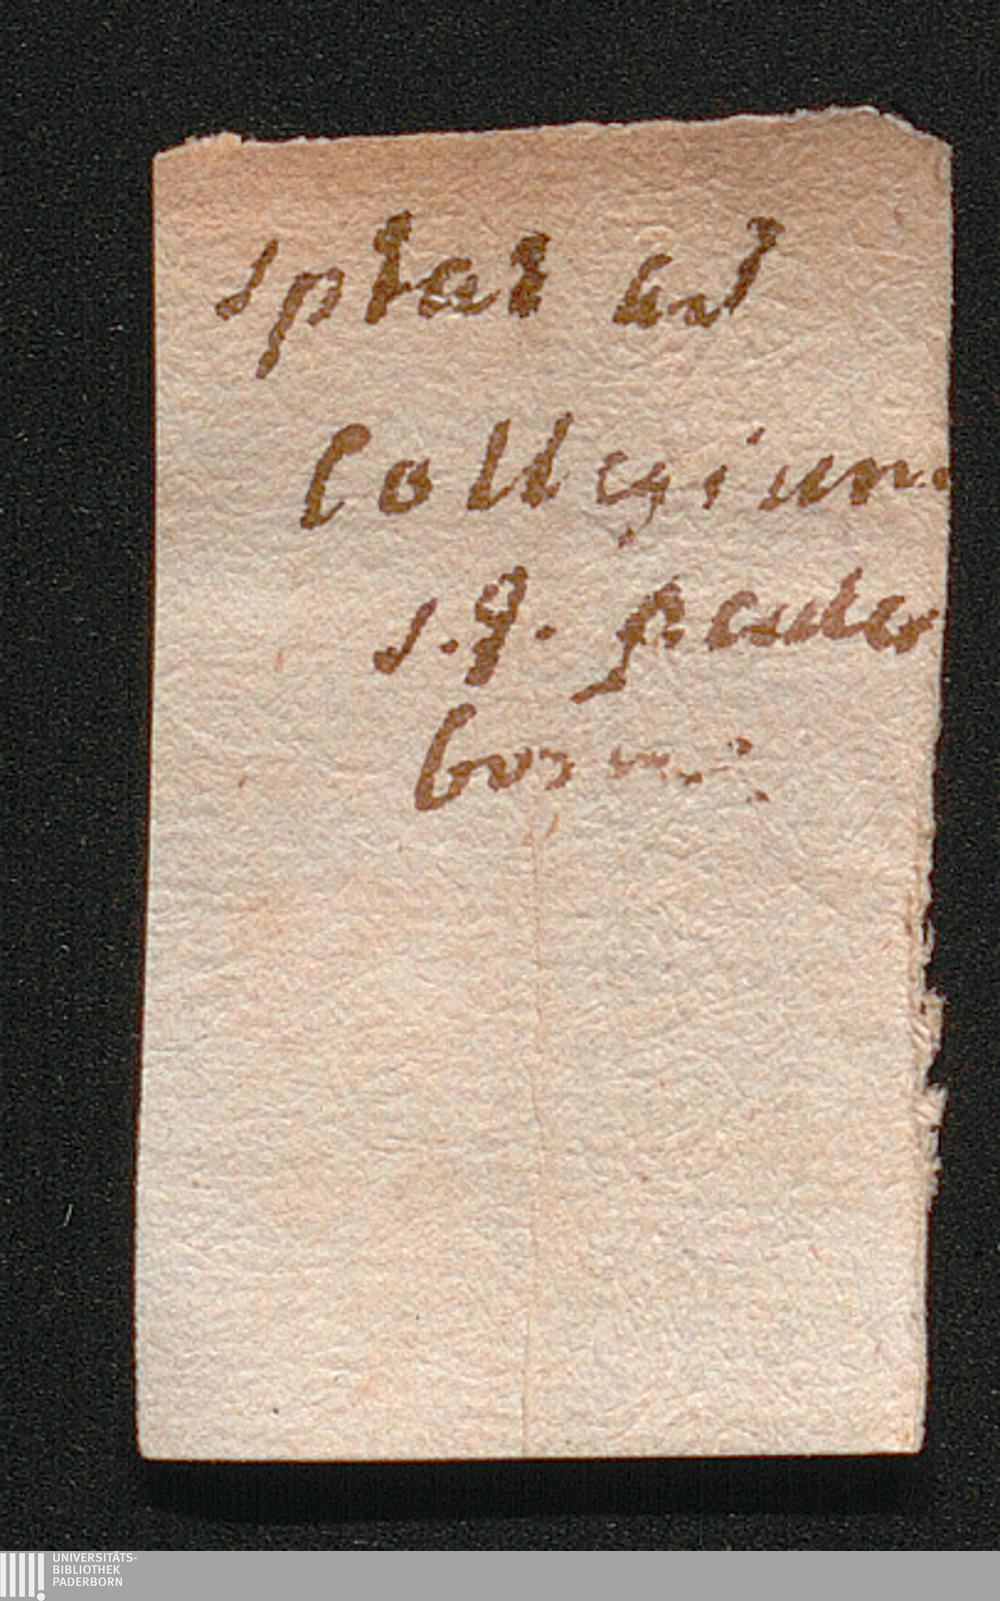 sptat ad
Collegium
s.J. pader
bornæ
UNIVERSITÄTS-
BIBLIOTHEK
PADERBORN